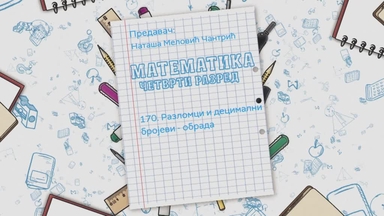 Предавач:
Наташа Меловић Чантрић
МАТЕМАТИКА
ЧЕТВРТИ РАЗРЕД
170. Разломци и децимални
бројеви - обрада